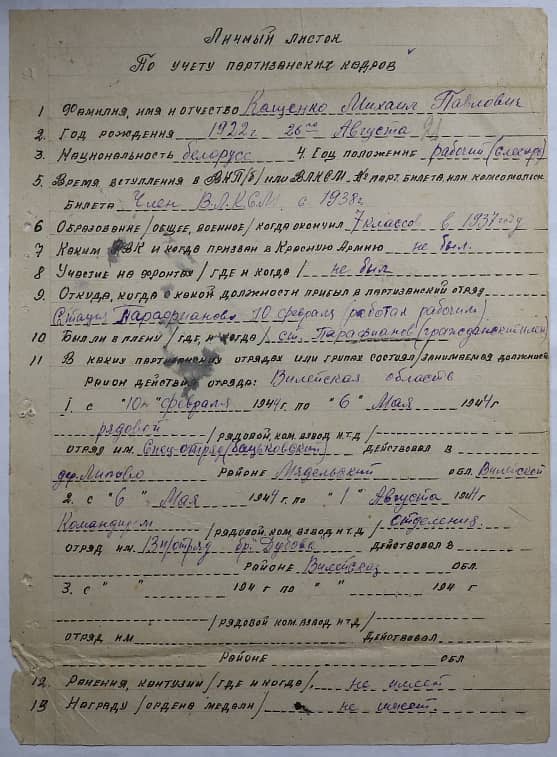 Личный листок
По учету партизанских кадров
1 Фамилия, имя и отчество Кащенко Михаил Павлович
2. Год рождения 1922 г 26 го Августа
3. Национальность белорусс 4. Соц положение рабочий (слесарь)
5. Время вступления в ВКП/б/ или ВЛКСМ. № парт. билета, или комсомольск
билета Член В.Л.К.С.М. с 1938 г
6 Образование /общее, военное/ когда окончил 7 классов в 1937 году
7 Каким РВК и когда призван в Красную Армию не был.
8 Участие на фронтах /где и когда/ не был
9. Откуда, когда с какой должности прибыл в партизанский отряд
Станция Парафианово 10 февраля (работал рабочим)
10 Был ли в плену /где, и когда/ ст. Парафианов (гражданский
11 В каких партизанских отрядах или групах состоял /занимаемая должность
Район действия отряда: Вилейская область
1. с "10" "февраля 1944 г. по "6" Мая 1944 г
рядовой /рядовой, ком. взвод. и.т.д/
отряд им. Спец-отряд (Бацьковский) действовал в
дер. Липово районе Мядельский обл. Вилейской
2. с "6" Мая 1944 г. по "1" Августа 1944 г
Командиром /рядовой. ком. взвод н.т.д/ отделения.
отряд им. 13 п/отряд бр. Дубова действовал в
районе Вилейская обл.
3. с " " 194 г по " " 194 г
/рядовой ком. взвод и.т.д/
отряд им Действовал
Районе обл
12. Ранения, контузии /где и когда/. не имеет
13 Награду /ордена медали/ не имеет.